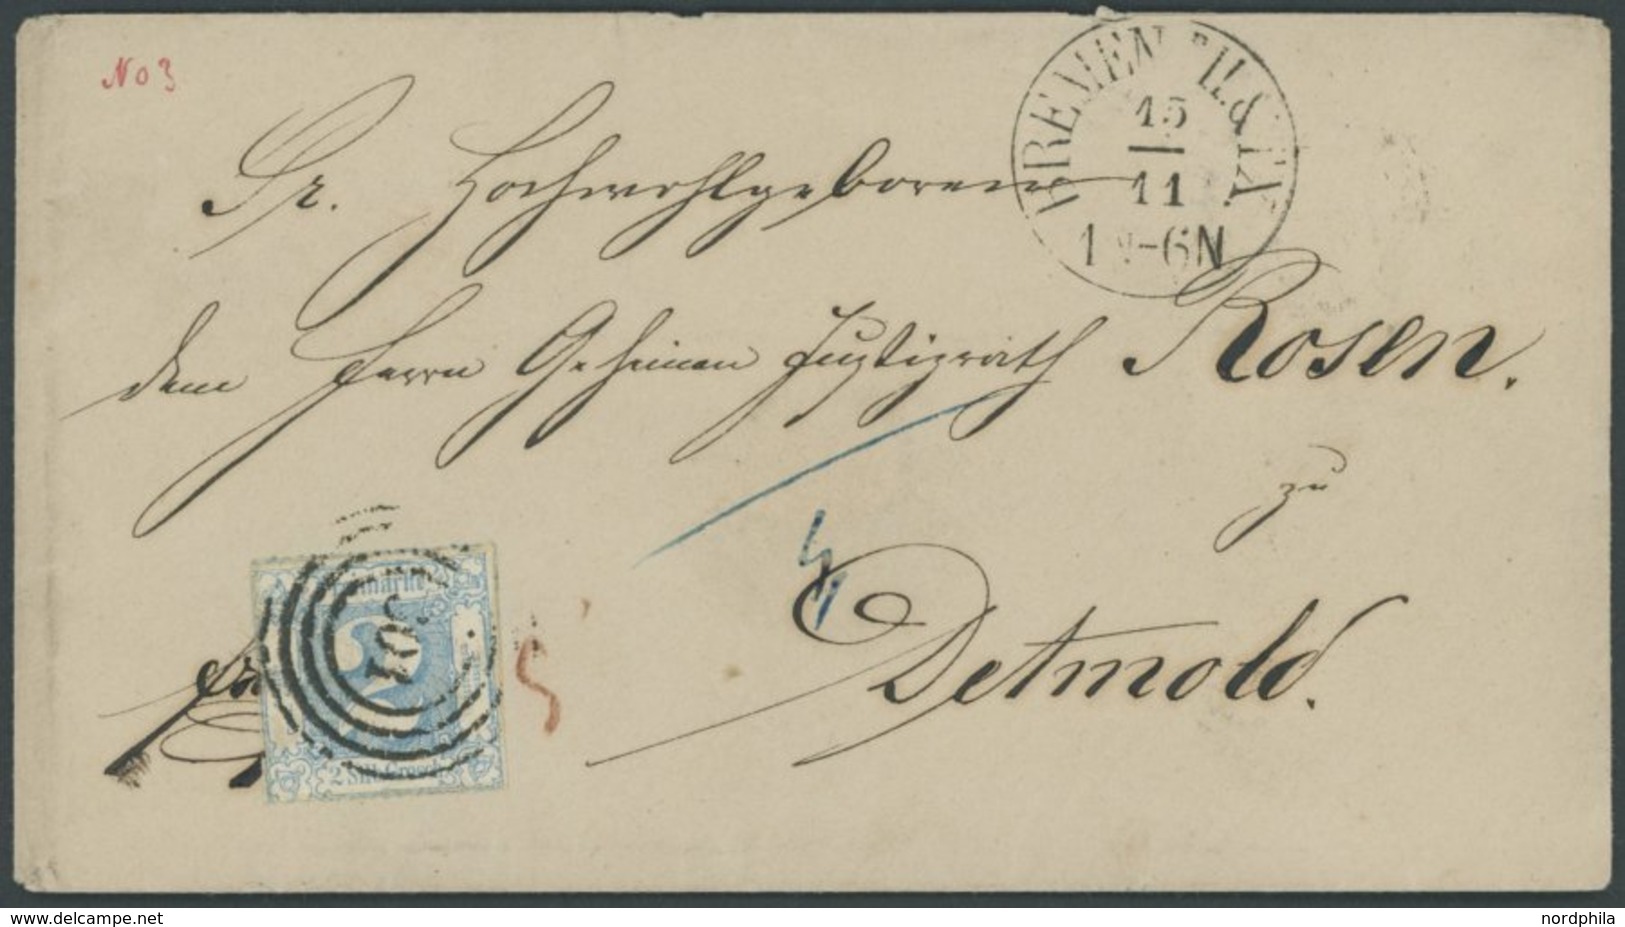 No 3
BREMEN TH. & TX.
15
11
1 -6N
Sr. Hochwohlgeboren
dem Herrn Geheimen Justizrath Rosen.
zu
Detmold.
Freimarke
2
301
2 Silb. Grosch.
www.delcampe.net
nordphila